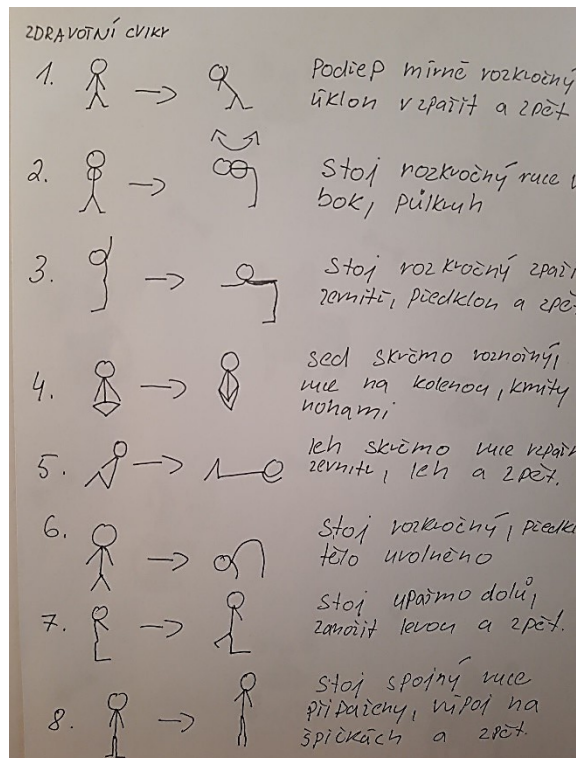 ZDRAVOTNÍ CVIKY
1. Podřep mírně rozkročný
úklon vzpařit a zpět
2. Stoj rozkročný ruce v
bok, půlkruh
3. Stoj rozkročný zpaři
zevnitř, předklon a zpět
4. sed skrčmo roznožný,
ruce na kolenou, kmity
nohami
5. leh skrčmo ruce vzpaři
zevnitř, leh a zpět.
6. Stoj rozkročný, předkl
tělo uvolněno
7. Stoj upažmo dolů,
zanožit levou a zpět.
8. Stoj spojný ruce
připaženy, výpoj na
špičkách a zpět.